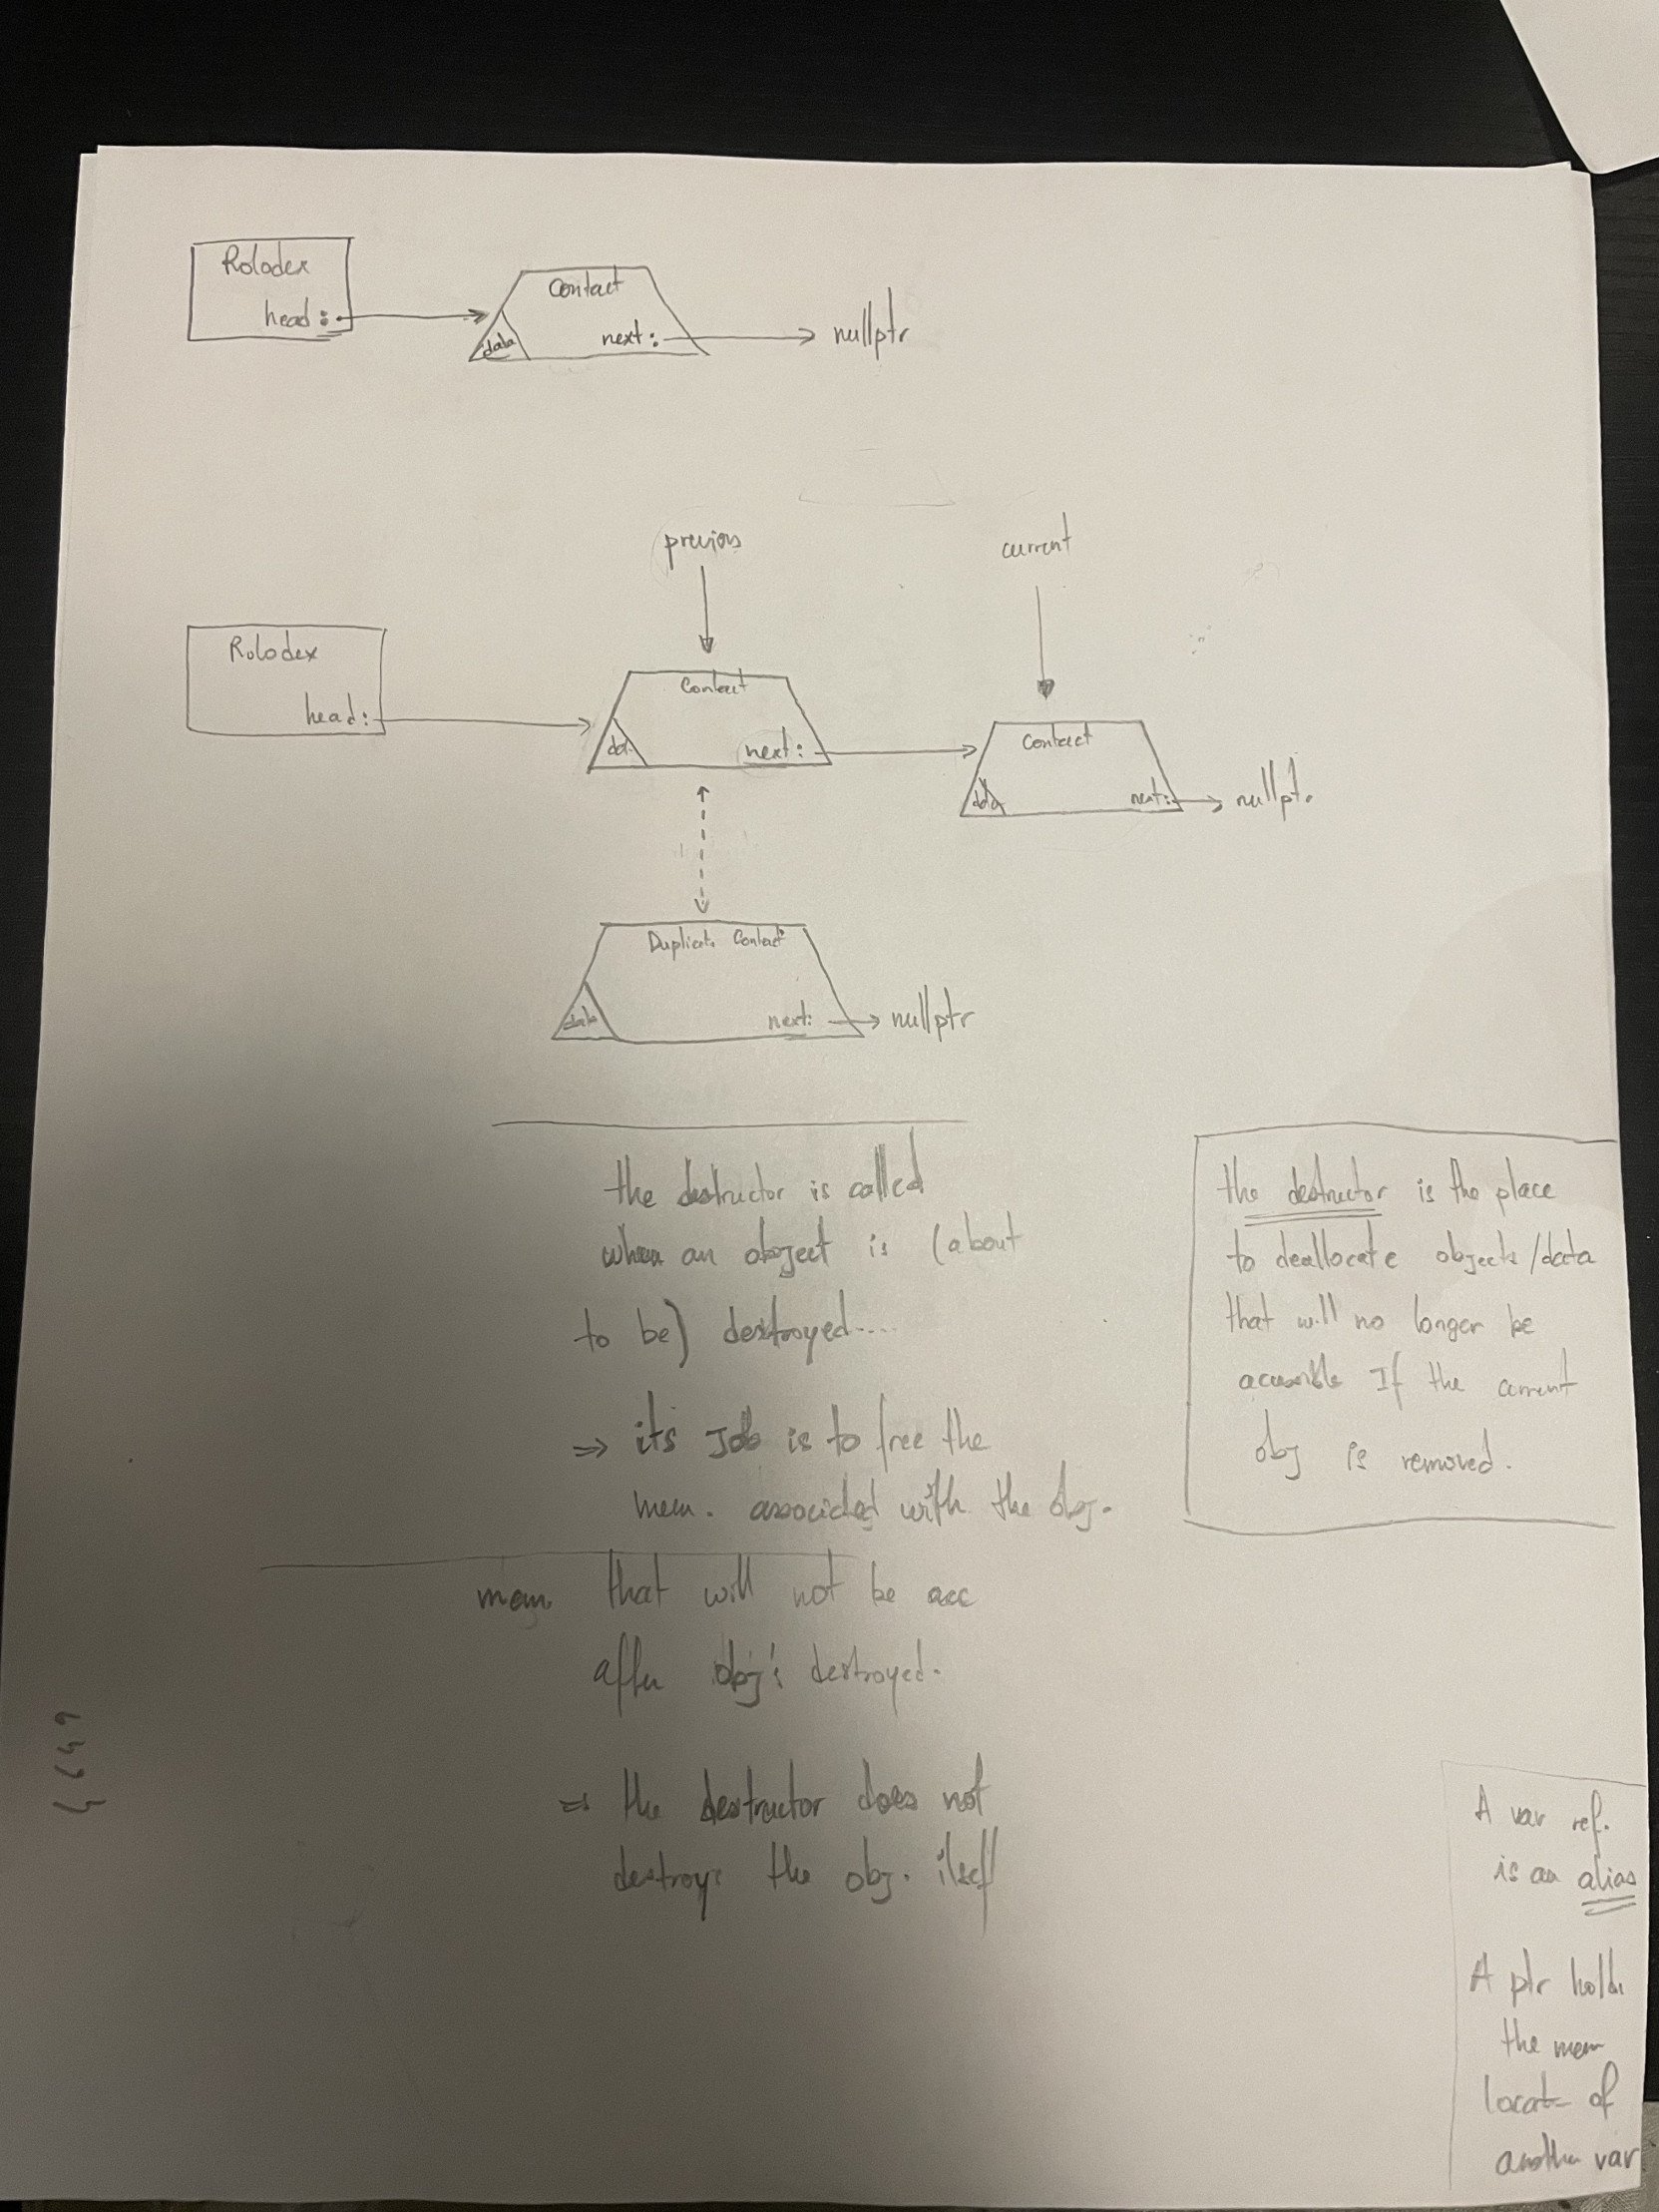 Rolodex
head:
Contact
data
next:
nullptr
previous
current
Rolodex
head:
Contact
dat.
next:
Contact
data
next:
nullptr
Duplicate Contact
data
next:
nullptr
the destructor is called
when an object is (about
to be) destroyed....
⇒ its Job is to free the
mem. associated with the obj.
mem that will not be acc
after obj's destroyed.
⇒ the destructor does not
destroys the obj. itself
the destructor is the place
to deallocate objects/data
that will no longer be
accessible If the current
obj is removed.
A var ref.
is an alias
A ptr holds
the mem
locat- of
another var